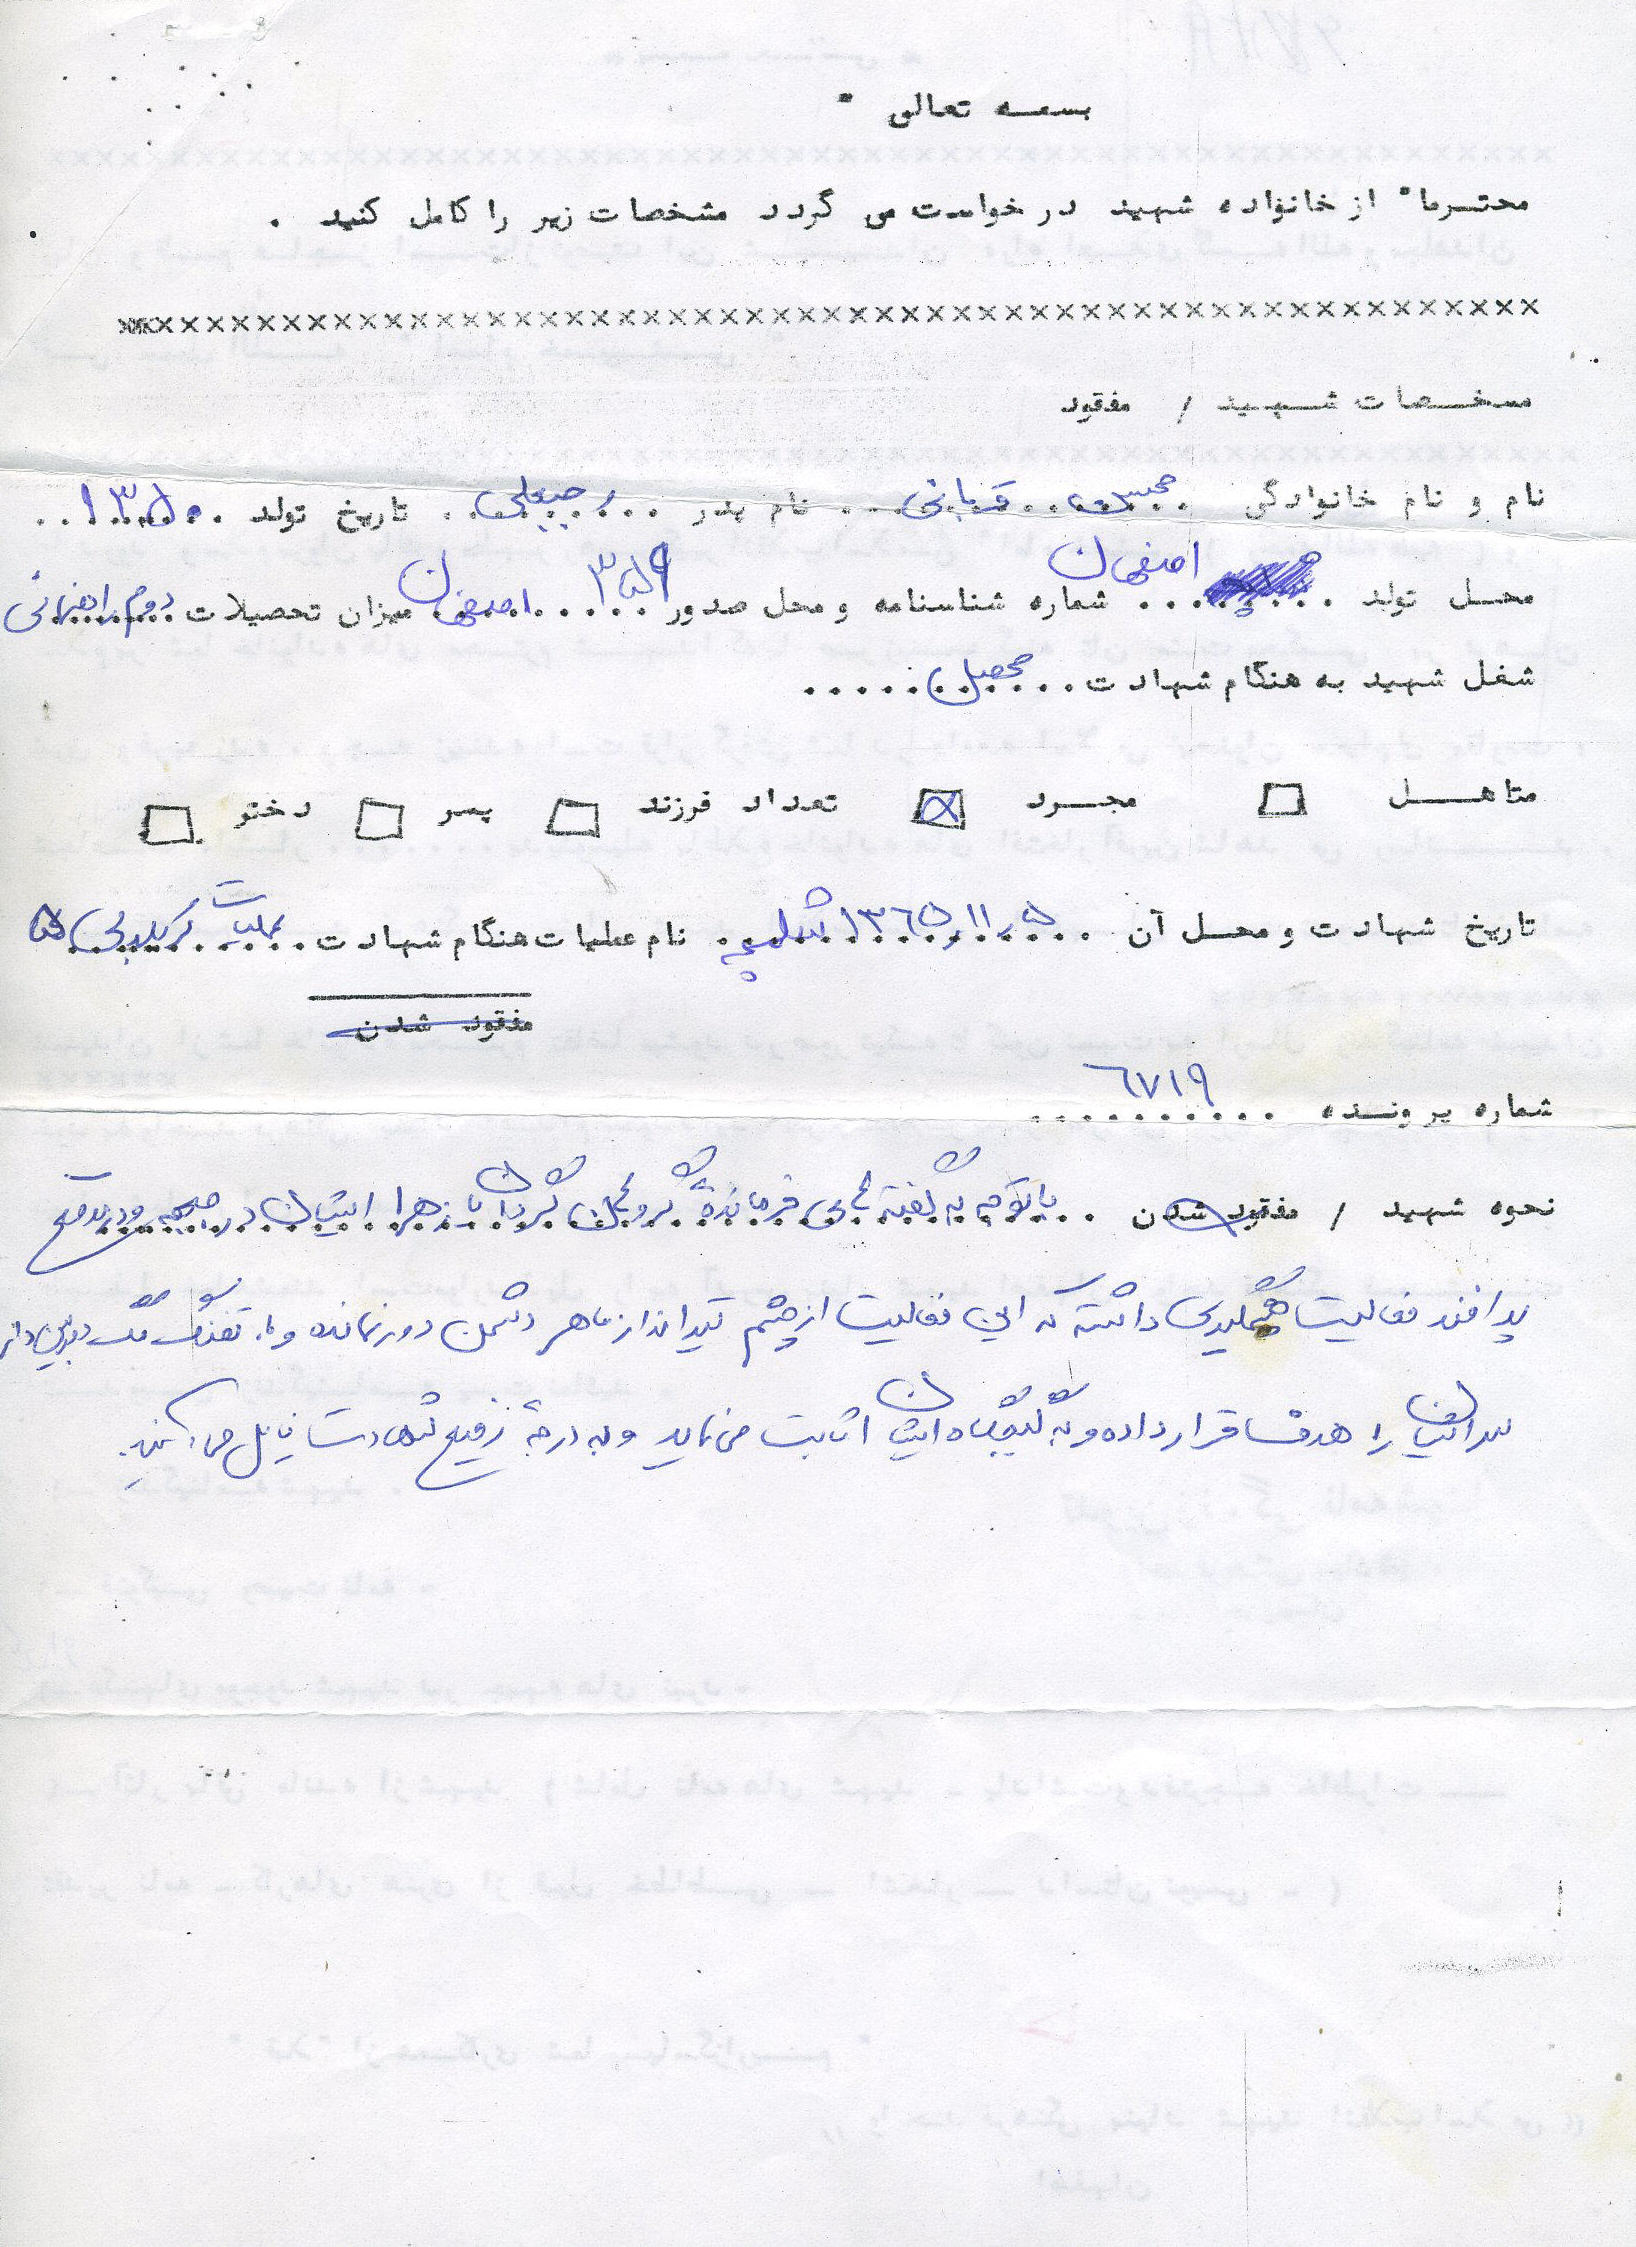 بسمه تعالی "
محترما" از خانواده شهید درخواست می گردد مشخصات زیر را کامل کنید .
××××××××××××××××××××××××××××××××××××××××××××××××××××××××
مسخصات شهید / مفقود
نام و نام خانوادگی محسن قربانی نام پدر رجبعلی تاریخ تولد ۱۳۵۰
محل تولد اصفهان شماره شناسنامه و محل صدور ۳۵۹ اصفهان میزان تحصیلات دوم راهنمائی
شغل شهید به هنگام شهادت محصل
متاهل مجرد تعداد فرزند پسر دختر
تاریخ شهادت و محل آن ۵ر۱۱ر۱۳۶۵ شلمچه نام عملیات هنگام شهادت عملیات کربلای ۵
مفقود شدن
شماره پرونده ۶۷۱۹
نحوه شهید / مفقود شدن باتوجه به گفته های فرمانده گروهان گردان یا زهرا ایشان در جبهه و در موقع
پدافند فعالیت چشمگیری داشته که این فعالیت از چشم تیرانداز ماهر دشمن دور نمانده و با تفنگ دوربین دار
سر ایشان را هدف قرار داده و به ایشان اثابت می نماید و به درجه رفیع شهادت نایل می کنید.